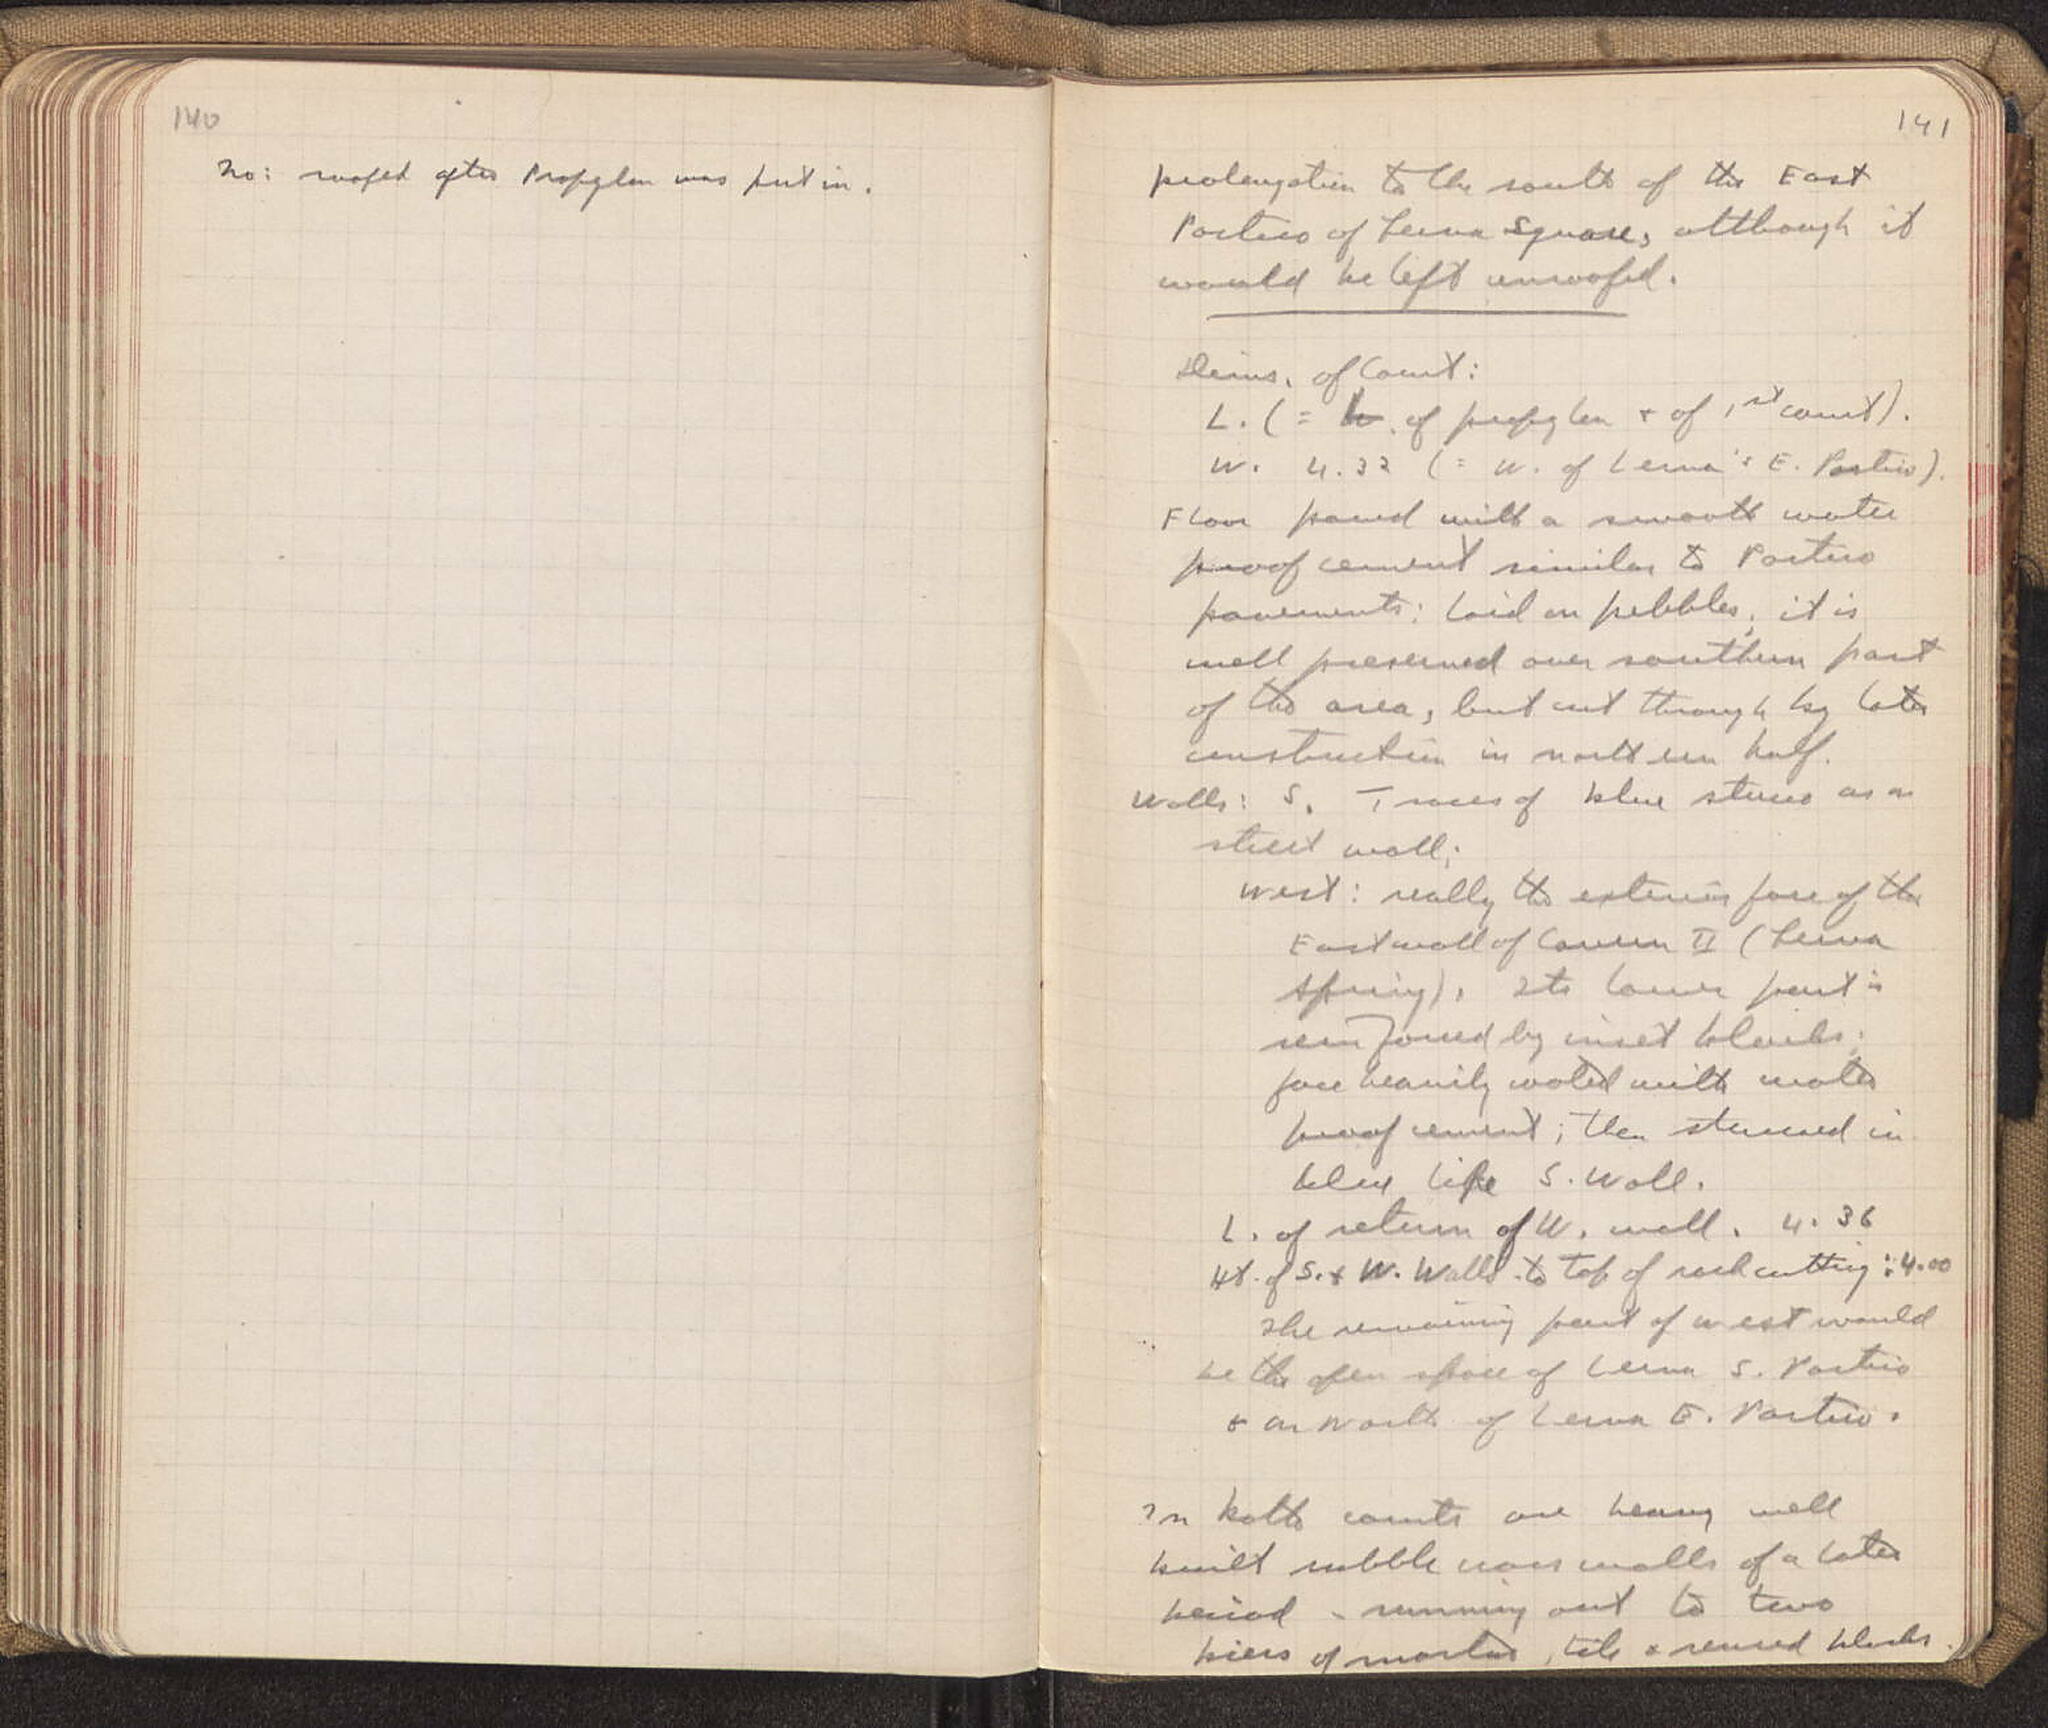 140
No: roofed after Propylon was put in.
141
prolongation to the south of the East
Portico of Lerna Square, although it
would be left unroofed.
Dims. of Court:
L. (= W. of propylon + of 1st court).
W. 4.32 (= W. of Lerna's E. Portico).
Floor paved with a smooth water
proof cement similar to Portico
pavements: laid on pebbles; it is
well preserved over southern part
of the area, but cut through by later
construction in northern half.
Walls: S. Traces of blue stucco as on
street wall;
West: really the exterior face of the
East wall of Cavern II (Lerna
Spring). Its lower part is
reinforced by inset blocks;
face heavily coated with water
proof cement; then stuccoed in
blue like S. Wall.
L. of return of W. wall. 4.36
Ht. of S. + W. Walls to top of rock cutting: 4.00
The remaining part of west would
be the open space of Lerna S. Portico
+ on North of Lerna E. Portico.
In both courts are heavy well
built rubble cross walls of a later
period - running out to two
piers of mortar, tile + reused blocks.